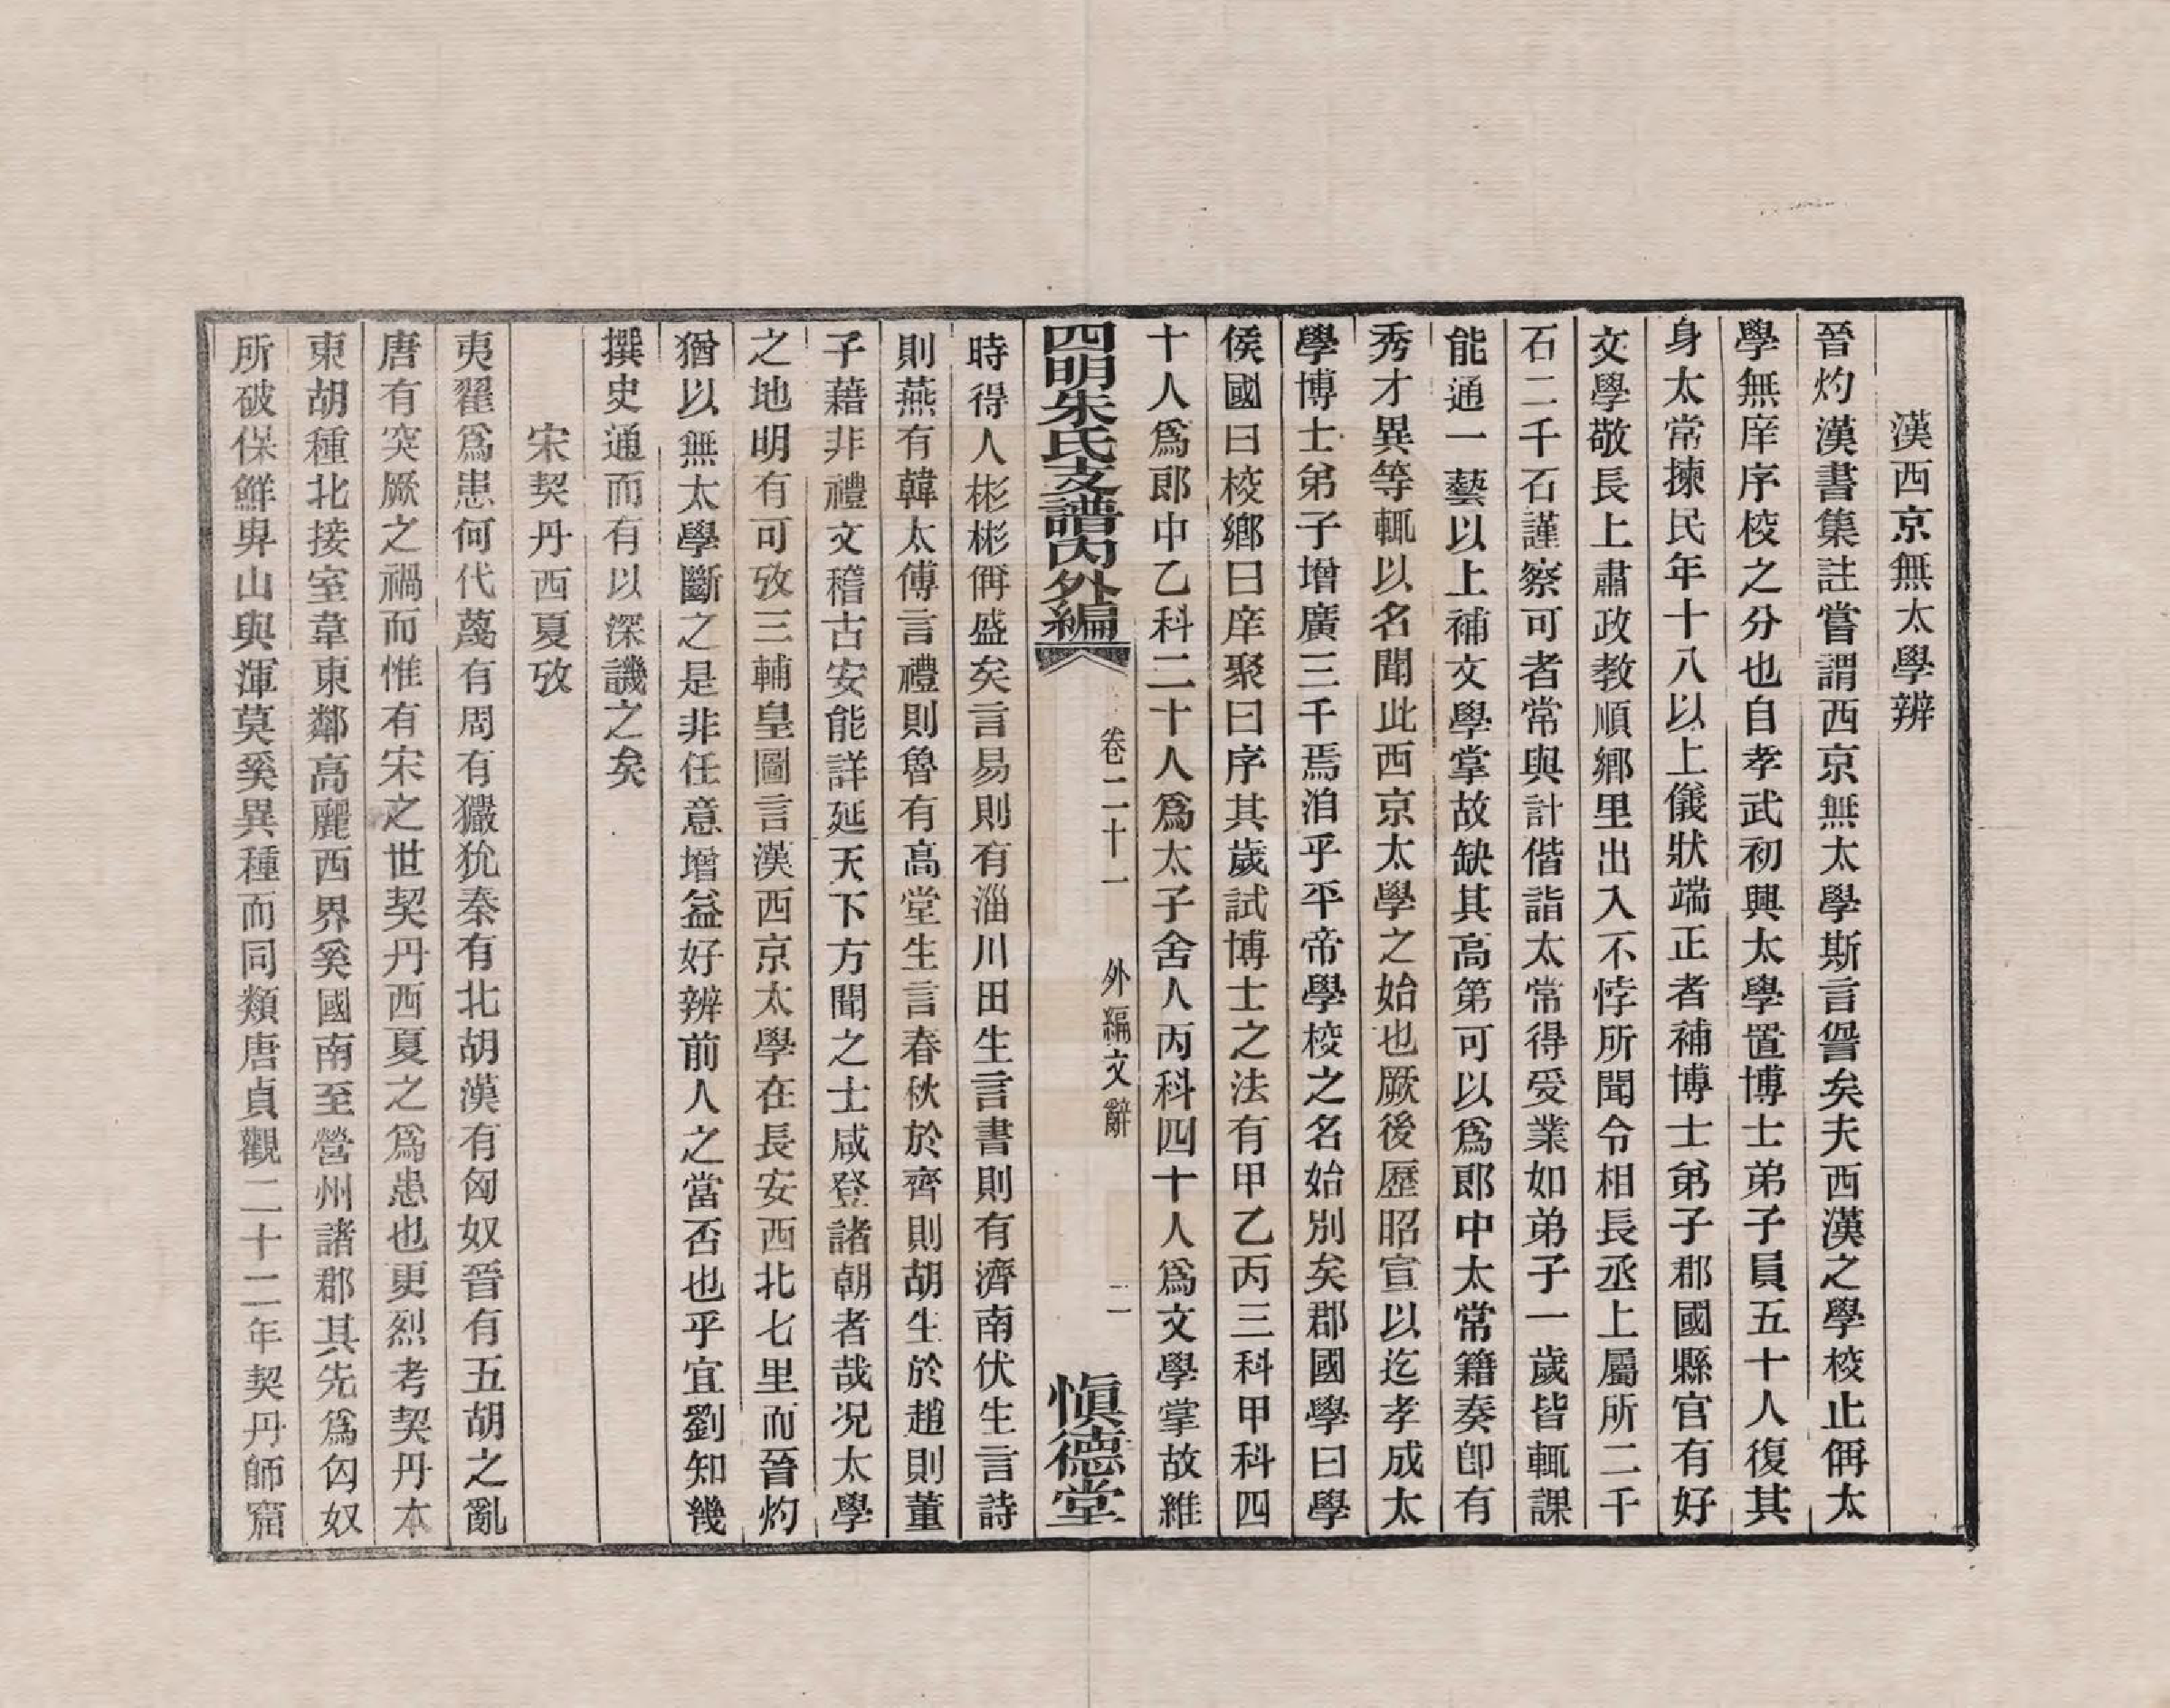 漢西京無太學辨
晉灼漢書集註嘗謂西京無太學斯言眢矣夫西漢之學校止偁太
學無庠序校之分也自孝武初興太學置博士弟子員五十人復其
身太常揀民年十八以上儀狀端正者補博士弟子郡國縣官有好
文學敬長上肅政教順鄉里出入不悖所聞令相長丞上屬所二千
石二千石謹察可者常與計偕詣太常得受業如弟子一歲皆輒課
能通一藝以上補文學掌故缺其高第可以爲郎中太常籍奏卽有
秀才異等輒以名聞此西京太學之始也厥後歷昭宣以迄孝成太
學博士弟子增廣三千焉洎乎平帝學校之名始別矣郡國學曰學
侯國曰校鄉曰庠聚曰序其歲試博士之法有甲乙丙三科甲科四
十人爲郎中乙科二十人爲太子舍人丙科四十人爲文學掌故維
四明朱氏支譜內外編
卷二十一
外編文辭
二
愼德堂
時得人彬彬偁盛矣言易則有淄川田生言書則有濟南伏生言詩
則燕有韓太傅言禮則魯有高堂生言春秋於齊則胡生於趙則董
子藉非禮文稽古安能詳延天下方聞之士咸登諸朝者哉况太學
之地明有可攷三輔皇圖言漢西京太學在長安西北七里而晉灼
猶以無太學斷之是非任意增益好辨前人之當否也乎宜劉知幾
撰史通而有以深譏之矣
宋契丹西夏攷
夷翟爲患何代蔑有周有玁狁秦有北胡漢有匈奴晉有五胡之亂
唐有突厥之禍而惟有宋之世契丹西夏之爲患也更烈考契丹本
東胡種北接室韋東鄰高麗西界奚國南至營州諸郡其先爲匈奴
所破保鮮卑山與渾莫奚異種而同類唐貞觀二十二年契丹師窟